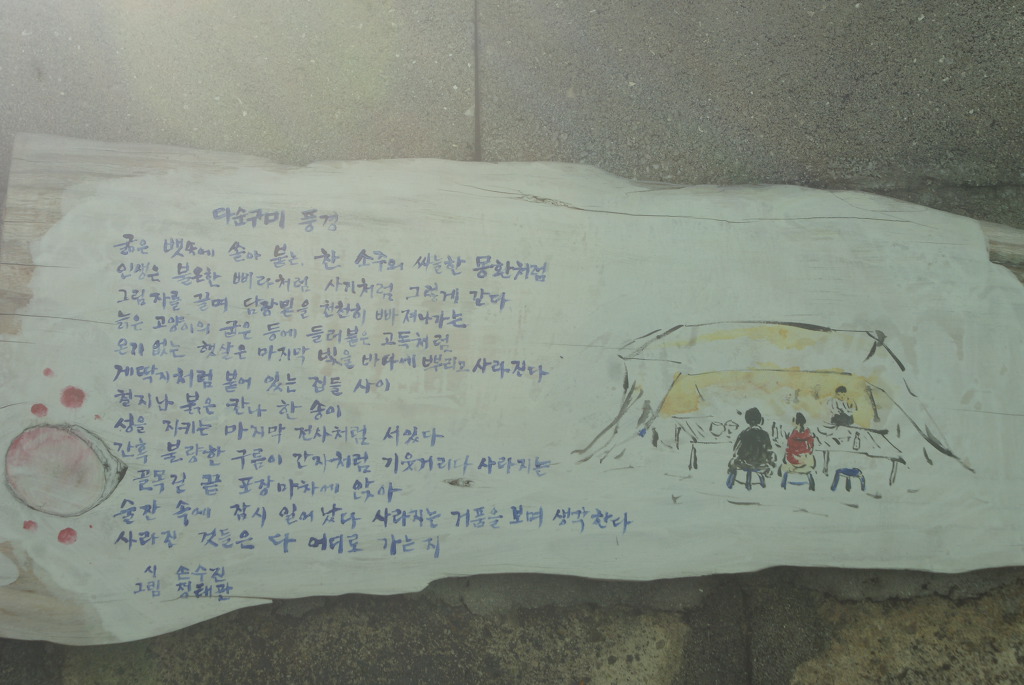 다순구미 풍경
굵은 뱃속에 쏟아 붓는 한 소주의 싸늘한 몽환처럼
인생은 불온한 삐라처럼 사기처럼 그렇게 간다
그림자를 끌며 담장밑을 천천히 빠져나가는
늙은 고양이의 굽은 등에 들러붙은 고독처럼
온기 없는 햇살은 마지막 빛을 바다에 뿌리고 사라진다
게딱지처럼 붙어 있는 집들 사이
철지난 붉은 칸나 한 송이
성을 지키는 마지막 전사처럼 서있다
간혹 불량한 구름이 간자처럼 기웃거리다 사라지는
골목길 끝 포장마차에 앉아
술잔 속에 잠시 일어났다 사라지는 거품을 보며 생각한다
사라진 것들은 다 어디로 가는지
시 손수진
그림 정태관